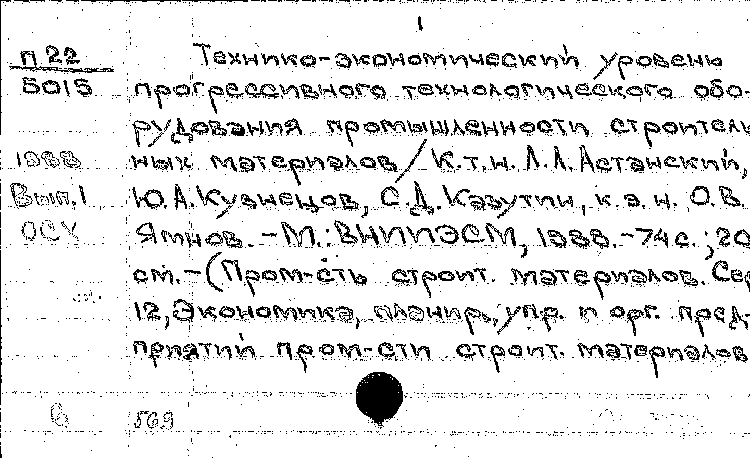 1
П 22 Технико-экономический уровень
5015 прогрессивного технологического обо-
рудования промышленности строитель
1988 ных материалов / К.т.н. Л.Л. Астанский,
Вып. 1 Ю.А. Кузнецов, С.Д. Казутин, к.э.н. О.В.
ОСУ Ямнов. – М.: ВНИИЭСМ, 1988. – 74 с.; 20
см. – (Пром-сть строит. материалов. Сер
12, Экономика, планир., упр. и орг. пред-
приятий пром-сти строит. материалов
569